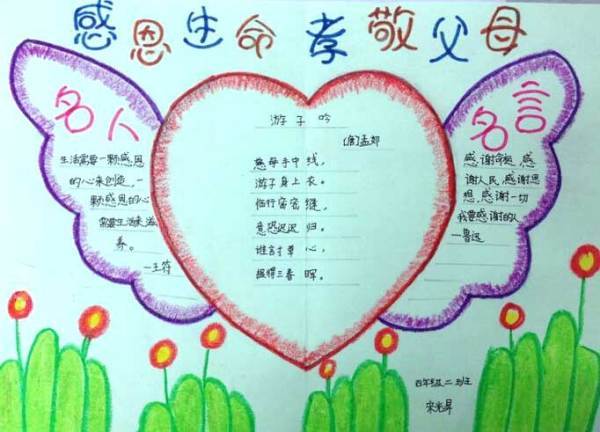 感恩生命 孝敬父母
名人
生活需要一颗感恩
的心来创造，一
颗感恩的心
需要生活来滋
养。
—王符
游子吟
(唐)孟郊
慈母手中线，
游子身上衣。
临行密密缝，
意恐迟迟归。
谁言寸草心，
报得三春晖。
名言
感谢命运，感
谢人民，感谢思
想，感谢一切
我要感谢的人
—鲁迅
四年级二班
宋光昇